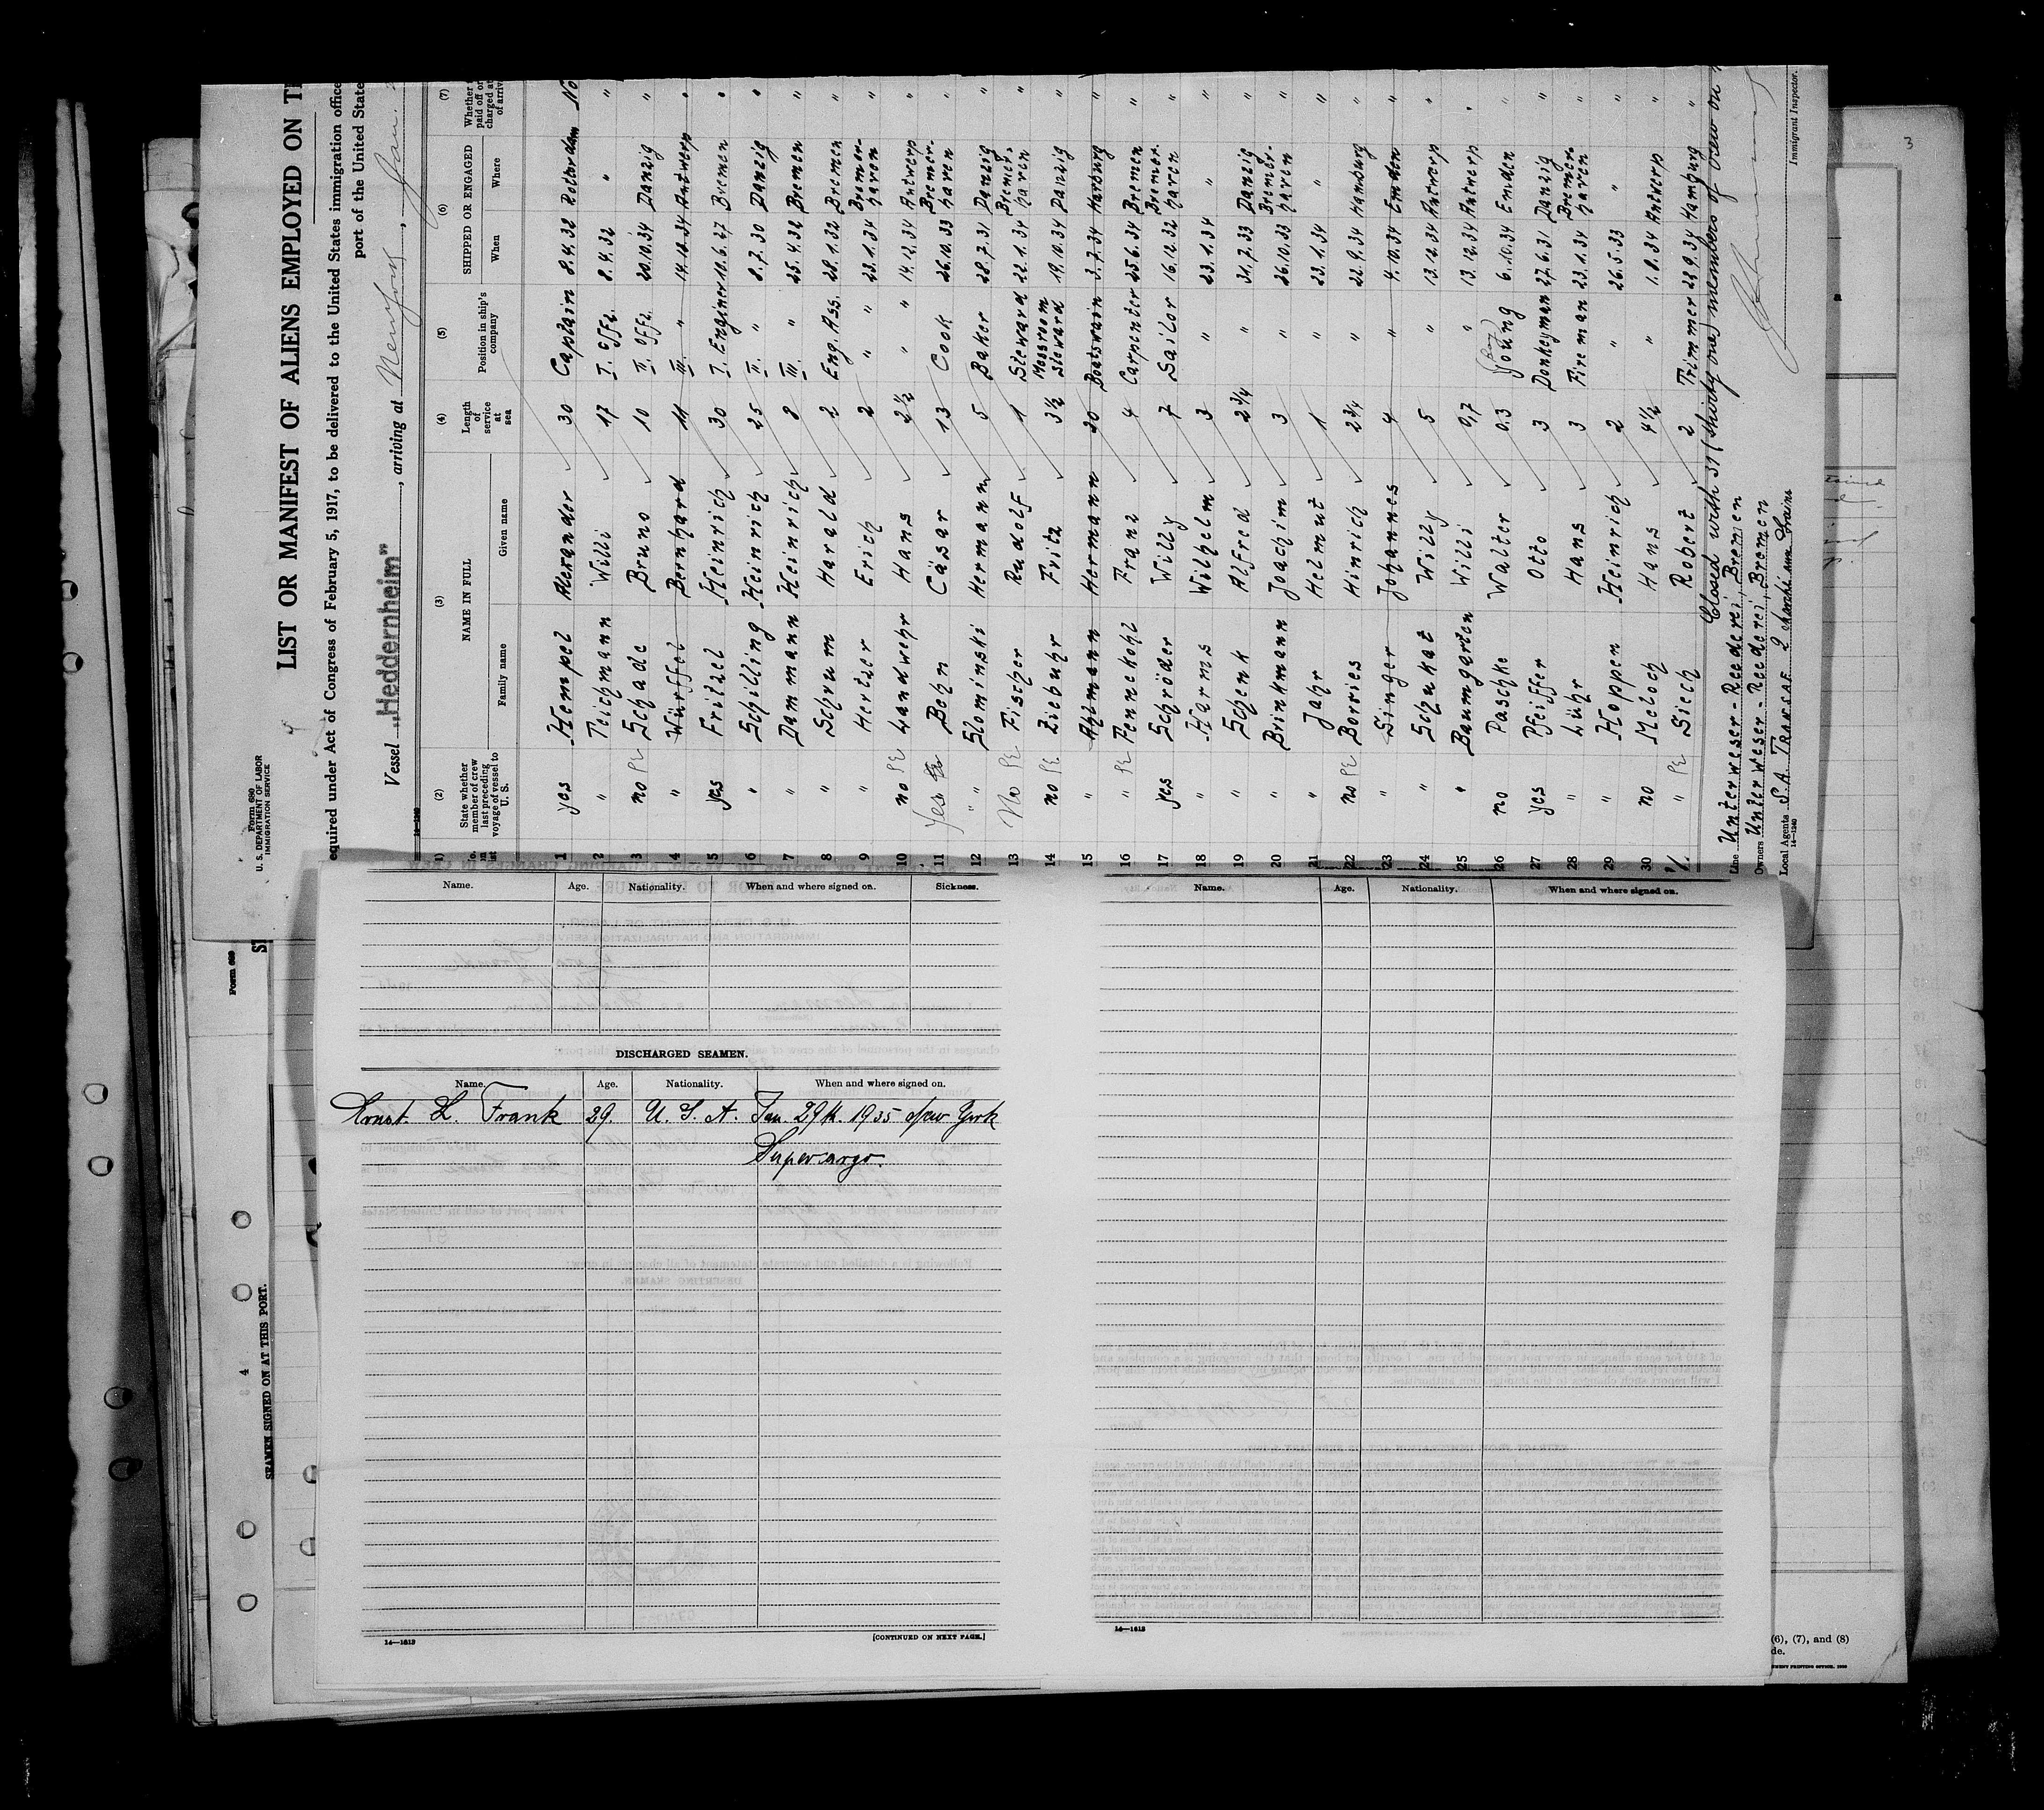 Form 680
U. S. DEPARTMENT OF LABOR
IMMIGRATION SERVICE
LIST OR MANIFEST OF ALIENS EMPLOYED ON
equired under Act of Congress of February 5, 1917, to be delivered to the United States immigration office
port of the United State
Vessel „Heddernheim", arriving at New York, Jan.
(2) (3) (4) (5) (6) (7)
State whether member of crew last preceding voyage of vessel to U. S.
NAME IN FULL
Family name Given name
Length of service at sea
Position in ship's company
SHIPPED OR ENGAGED
When Where
1 yes Hempel Alexander 30 Captain 8.4.32 Rotterdam No
2 " Teichmann Willi 17 I. Offz. 8.4.32 " "
3 no PE Schade Bruno 10 II. Offz. 20.10.34 Danzig "
4 " Würffel Bernhard 11 III. " 14.10.34 Antwerp "
5 yes Fritzel Heinrich 30 I. Enginer 10.6.27 Bremen "
6 " Schilling Heinrich 25 II. " 8.7.30 Danzig "
7 " Dammann Heinrich 8 III. " 25.4.32 Bremen "
8 " Schrum Harald 2 Eng. Ass. 28.1.32 Bremen "
9 " Hertzer Erich 2 " 23.1.34 Bremerhaven "
10 no PE Landwehr Hans 2½ " 14.12.34 Antwerp "
11 Yes Behn Cäsar 13 Cook 26.10.33 Bremerhaven "
12 " Slominski Hermann 5 Baker 28.7.31 Danzig "
13 No PE Fischer Rudolf 1 Steward 22.1.34 Bremerhaven "
14 no PE Ziebuhr Fritz 3½ Messroom Steward 19.10.34 Danzig "
15 " Ahlmann Hermann 20 Boatswain 3.7.34 Harburg "
16 " PE Pennekohl Franz 4 Carpenter 25.6.34 Bremen "
17 yes Schröder Willy 7 Sailor 16.12.32 Bremerhaven "
18 " Harms Wilhelm 3 " 23.1.34 " "
19 " Schenk Alfred 2¾ " 31.7.33 Danzig "
20 " Brinkmann Joachim 3 " 26.10.33 Bremerhaven "
21 " Jahr Helmut 1 " 23.1.34 " "
22 no PE Bories Hinrich 2¾ " 22.9.34 Hamburg "
23 " Singer Johannes 4 " 4.10.34 Emden "
24 " Schukat Willy 5 " 13.12.34 Antwerp "
25 " Baumgarten Willi 0,7 " 13.12.34 Antwerp "
26 no Paschke Walter 0.3 Young (boy) 6.10.34 Emden "
27 yes Pfeiffer Otto 3 Donkeyman 27.6.31 Danzig "
28 " Lühr Hans 3 Fireman 23.1.34 Bremerhaven "
29 " Hoppen Heinrich 2 " 26.5.33 " "
30 no Meloch Hans 4½ " 1.8.34 Antwerp "
31. " PE Siech Robert 2 Trimmer 22.9.34 Hamburg "
Closed with 31 (thirty one) members of crew on
Line Unterweser-Reederei, Bremen
Owners Unterweser-Reederei, Bremen
Local Agents
14—1240
Immigrant Inspector.
Name. Age. Nationality. When and where signed on. Sickness.
DISCHARGED SEAMEN.
Name. Age. Nationality. When and where signed on.
Ernst. L. Frank 29. U. S. A. Jan. 29th. 1935 New York
Supercargo.
14—1613 [CONTINUED ON NEXT PAGE.]
Name. Age. Nationality. When and where signed on.
14—1613
Form 689
SEAMEN SIGNED ON AT THIS PORT.
4
3
(6), (7), and (8)
de.